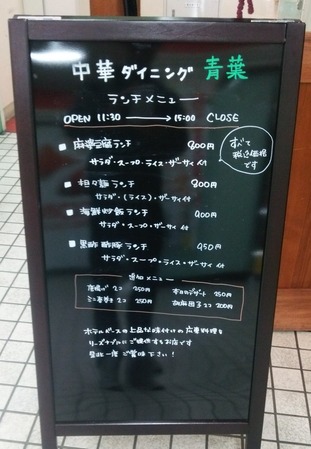 中華ダイニング 青葉
ランチメニュー
OPEN 11:30 → 15:00 CLOSE
■ 麻婆豆腐ランチ 800円
サラダ・スープ・ライス・ザーサイ付
すべて
税込価格
です
■ 担々麺ランチ 800円
サラダ・(ライス)・ザーサイ付
■ 海鮮炒飯ランチ 900円
サラダ・スープ・ザーサイ付
■ 黒酢酢豚ランチ 950円
サラダ・スープ・ライス・ザーサイ付
追加メニュー
唐揚げ 2コ 250円 本日のデザート 250円
ミニ春巻き 2コ 250円 胡麻団子 2コ 200円
ホテルベースの上品な味付けの広東料理を
リーズナブルにご提供するお店です
是非一度ご賞味下さい!